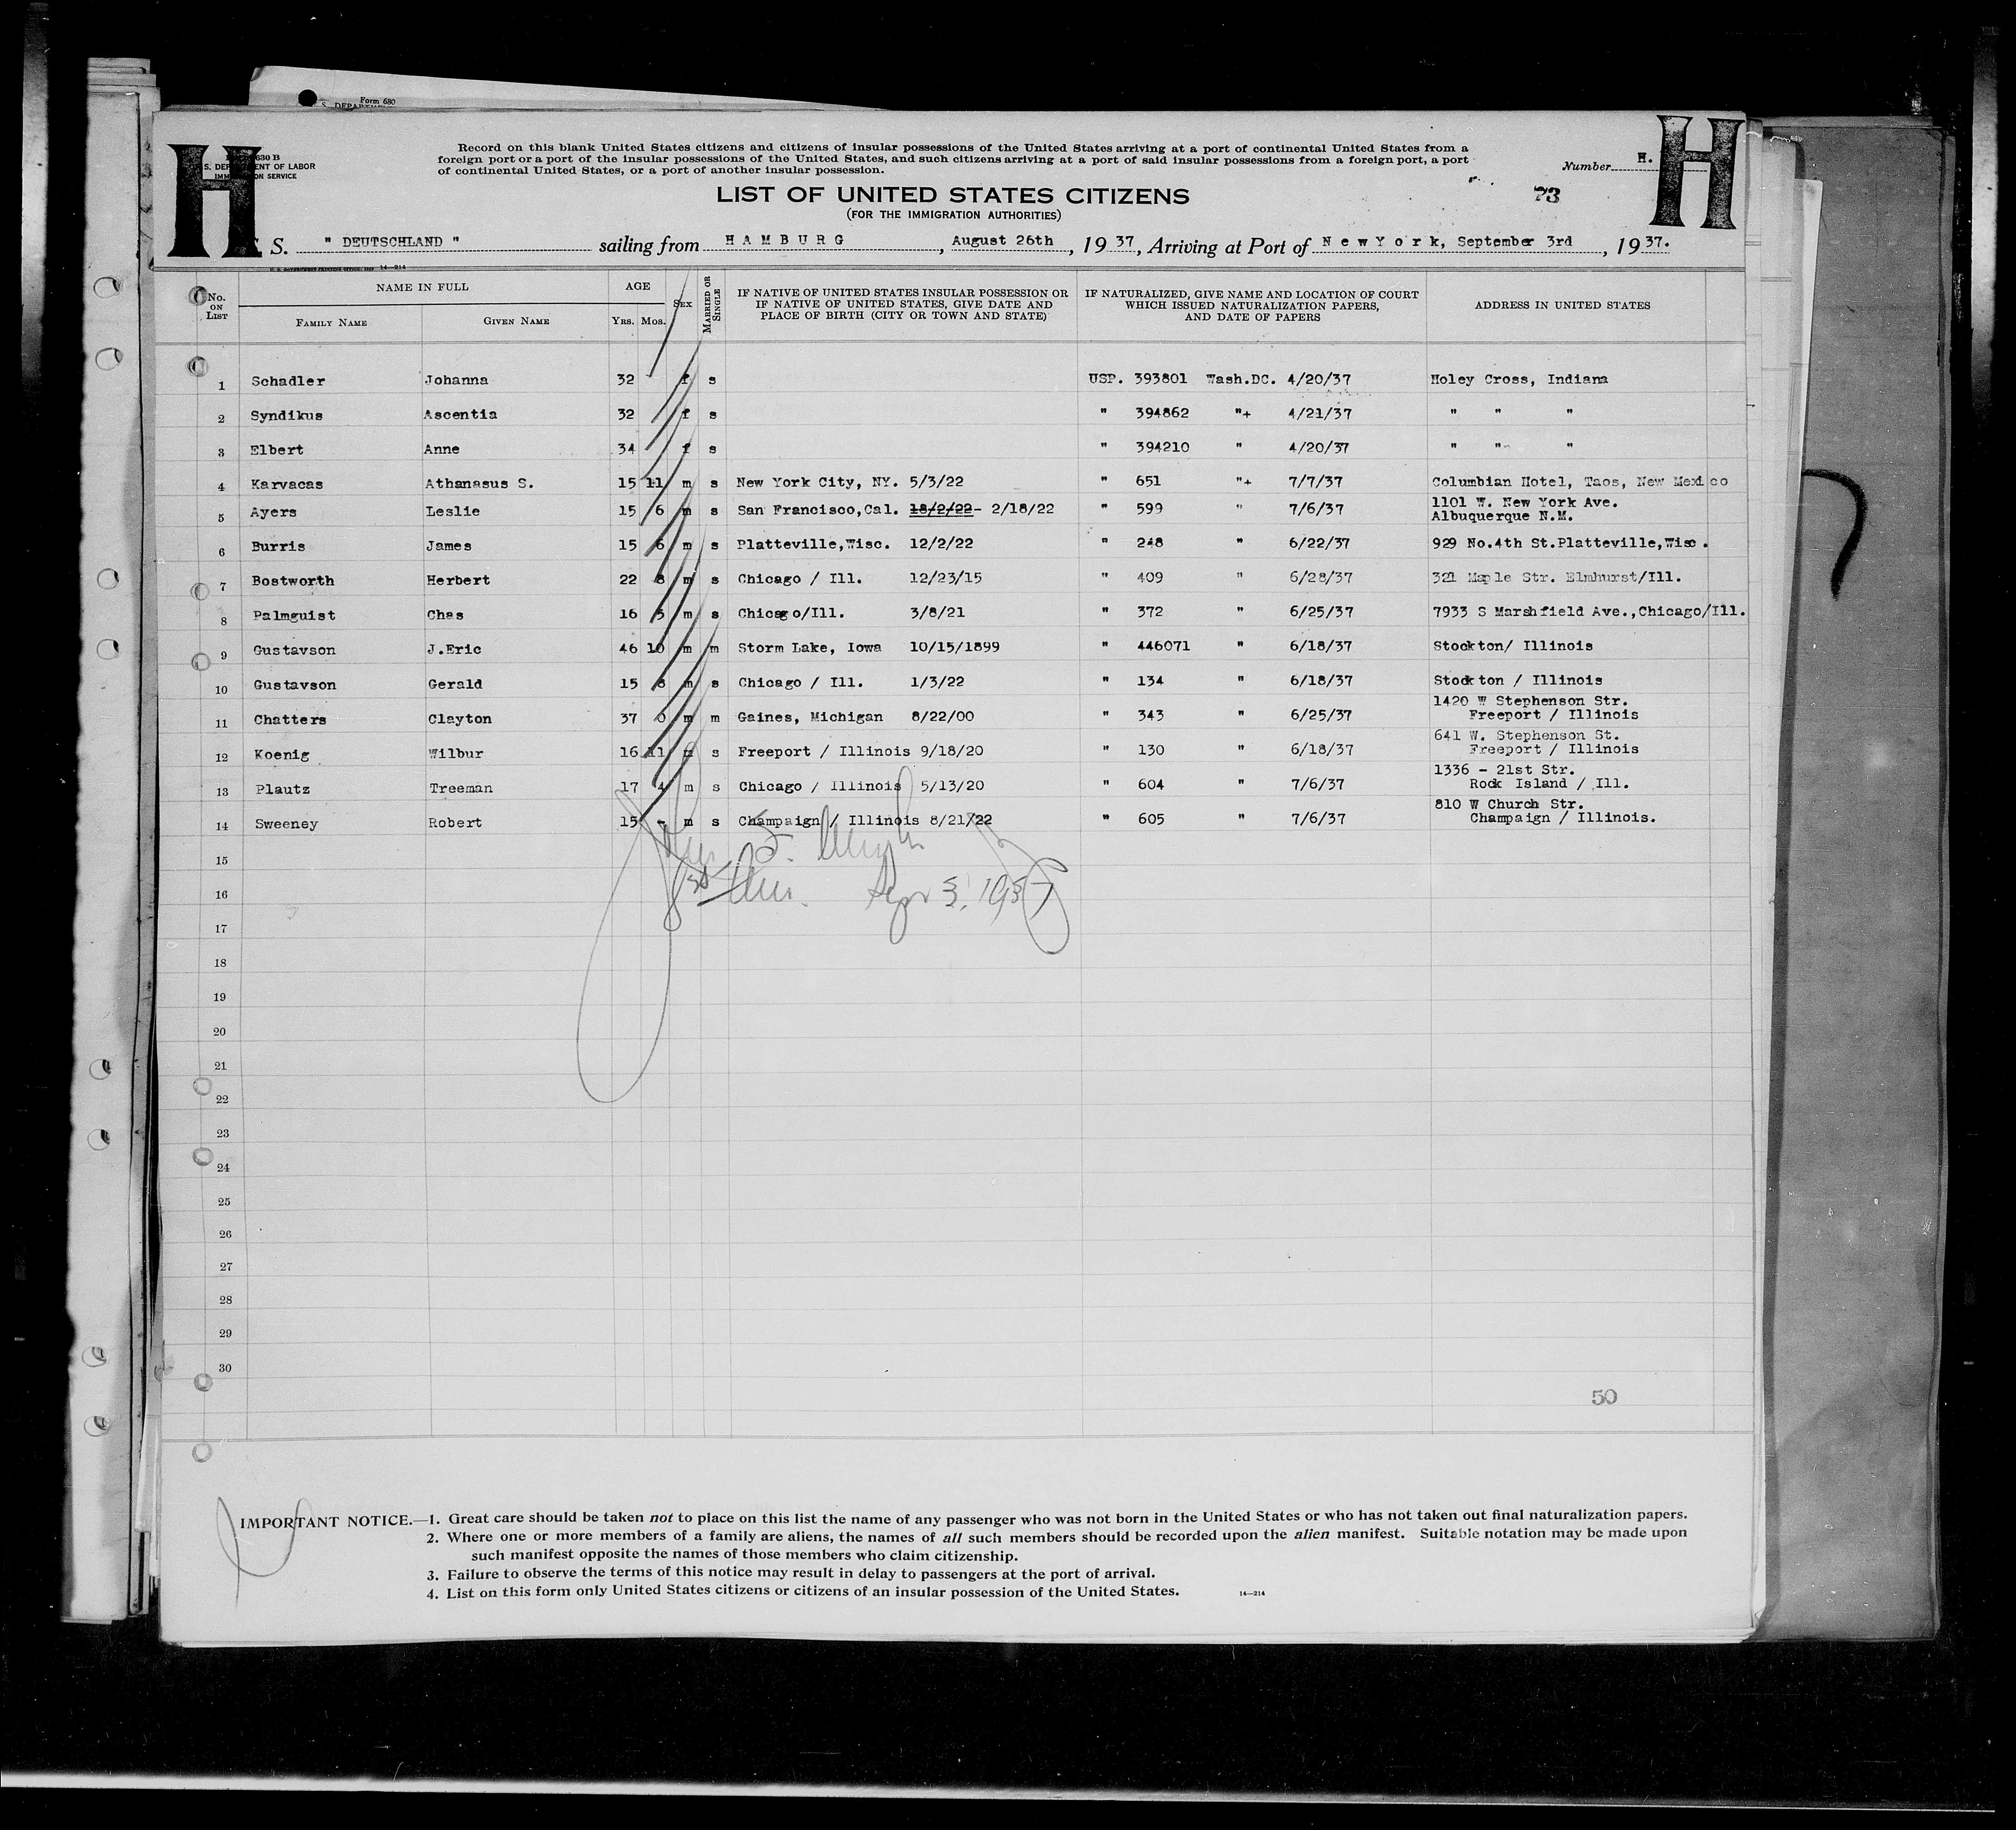 Form 680
S. DEPARTMENT
H H
630 B
S. DEPARTMENT OF LABOR
IMMIGRATION SERVICE
Record on this blank United States citizens and citizens of insular possessions of the United States arriving at a port of continental United States from a
foreign port or a port of the insular possessions of the United States, and such citizens arriving at a port of said insular possessions from a foreign port, a port
of continental United States, or a port of another insular possession.
Number H.
LIST OF UNITED STATES CITIZENS
73
(FOR THE IMMIGRATION AUTHORITIES)
S. " DEUTSCHLAND " sailing from HAMBURG, August 26th, 19 37, Arriving at Port of New York, September 3rd, 19 37.
14—214
No. ON LIST NAME IN FULL FAMILY NAME GIVEN NAME AGE YRS. MOS. SEX MARRIED OR SINGLE IF NATIVE OF UNITED STATES INSULAR POSSESSION OR IF NATIVE OF UNITED STATES, GIVE DATE AND PLACE OF BIRTH (CITY OR TOWN AND STATE) IF NATURALIZED, GIVE NAME AND LOCATION OF COURT WHICH ISSUED NATURALIZATION PAPERS, AND DATE OF PAPERS ADDRESS IN UNITED STATES
1 Schadler Johanna 32 f s USP. 393801 Wash.DC. 4/20/37 Holey Cross, Indiana
2 Syndikus Ascentia 32 f s " 394862 "+ 4/21/37 " " "
3 Elbert Anne 34 f s " 394210 " 4/20/37 " " "
4 Karvacas Athanasus S. 15 11 m s New York City, NY. 5/3/22 " 651 "+ 7/7/37 Columbian Hotel, Taos, New Mexico
5 Ayers Leslie 15 6 m s San Francisco,Cal. 18/2/22- 2/18/22 " 599 " 7/6/37 1101 W. New York Ave.
Albuquerque N.M.
6 Burris James 15 6 m s Platteville,Wisc. 12/2/22 " 248 " 6/22/37 929 No.4th St.Platteville,Wisc.
7 Bostworth Herbert 22 8 m s Chicago / Ill. 12/23/15 " 409 " 6/28/37 321 Maple Str. Elmhurst/Ill.
8 Palmguist Chas 16 5 m s Chicago/Ill. 3/8/21 " 372 " 6/25/37 7933 S Marshfield Ave.,Chicago/Ill.
9 Gustavson J.Eric 46 10 m m Storm Lake, Iowa 10/15/1899 " 446071 " 6/18/37 Stockton/ Illinois
10 Gustavson Gerald 15 8 m s Chicago / Ill. 1/3/22 " 134 " 6/18/37 Stockton / Illinois
11 Chatters Clayton 37 0 m m Gaines, Michigan 8/22/00 " 343 " 6/25/37 1420 W Stephenson Str.
Freeport / Illinois
12 Koenig Wilbur 16 11 m s Freeport / Illinois 9/18/20 " 130 " 6/18/37 641 W. Stephenson St.
Freeport / Illinois
13 Plautz Treeman 17 4 m s Chicago / Illinois 5/13/20 " 604 " 7/6/37 1336 - 21st Str.
Rock Island / Ill.
14 Sweeney Robert 15 - m s Champaign / Illinois 8/21/22 " 605 " 7/6/37 810 W Church Str.
Champaign / Illinois.
15
16
17
18
19
20
21
22
23
24
25
26
27
28
29
30
50
IMPORTANT NOTICE.—1. Great care should be taken not to place on this list the name of any passenger who was not born in the United States or who has not taken out final naturalization papers.
2. Where one or more members of a family are aliens, the names of all such members should be recorded upon the alien manifest. Suitable notation may be made upon
such manifest opposite the names of those members who claim citizenship.
3. Failure to observe the terms of this notice may result in delay to passengers at the port of arrival.
4. List on this form only United States citizens or citizens of an insular possession of the United States. 14—214